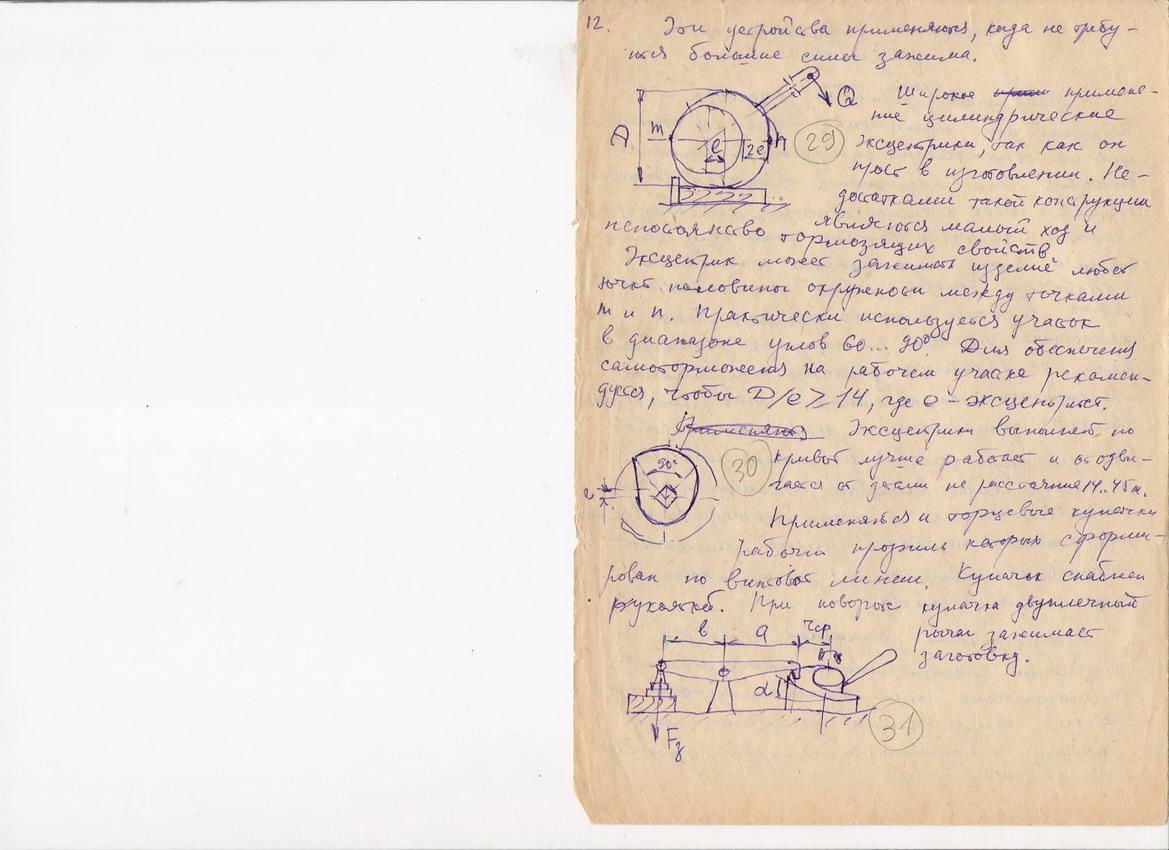 12. Эти устройства применяются, когда не требу-
ются большие силы зажима.
Q
Широкое приме примене-
D m e 2e n 29
ние цилиндрические
эксцентрики, так как он
прост в изготовлении. Не-
достатками такой конструкции
являются малый ход и
непостоянство тормозящих свойств
Эксцентрик может зажимать изделие любой
точкой половины окружности между точками
m и n. Практически используется участок
в диапазоне углов 60...90° Для обеспечения
самоторможения на рабочем участке рекомен-
дуется, чтобы D/e ≥ 14, где e - эксцентриситет.
Применяются Эксцентрики выполнен по
90° 30
кривой лучше работает и отодви-
гается от детали на расстояние
Применяются и торцевые кулачки
рабочий профиль которых сформи-
рован по винтовой линии. Кулачок снабжен
рукояткой. При повороте кулачка двуплечный
рычаг зажимает
заготовку.
в a rср
α
31
F